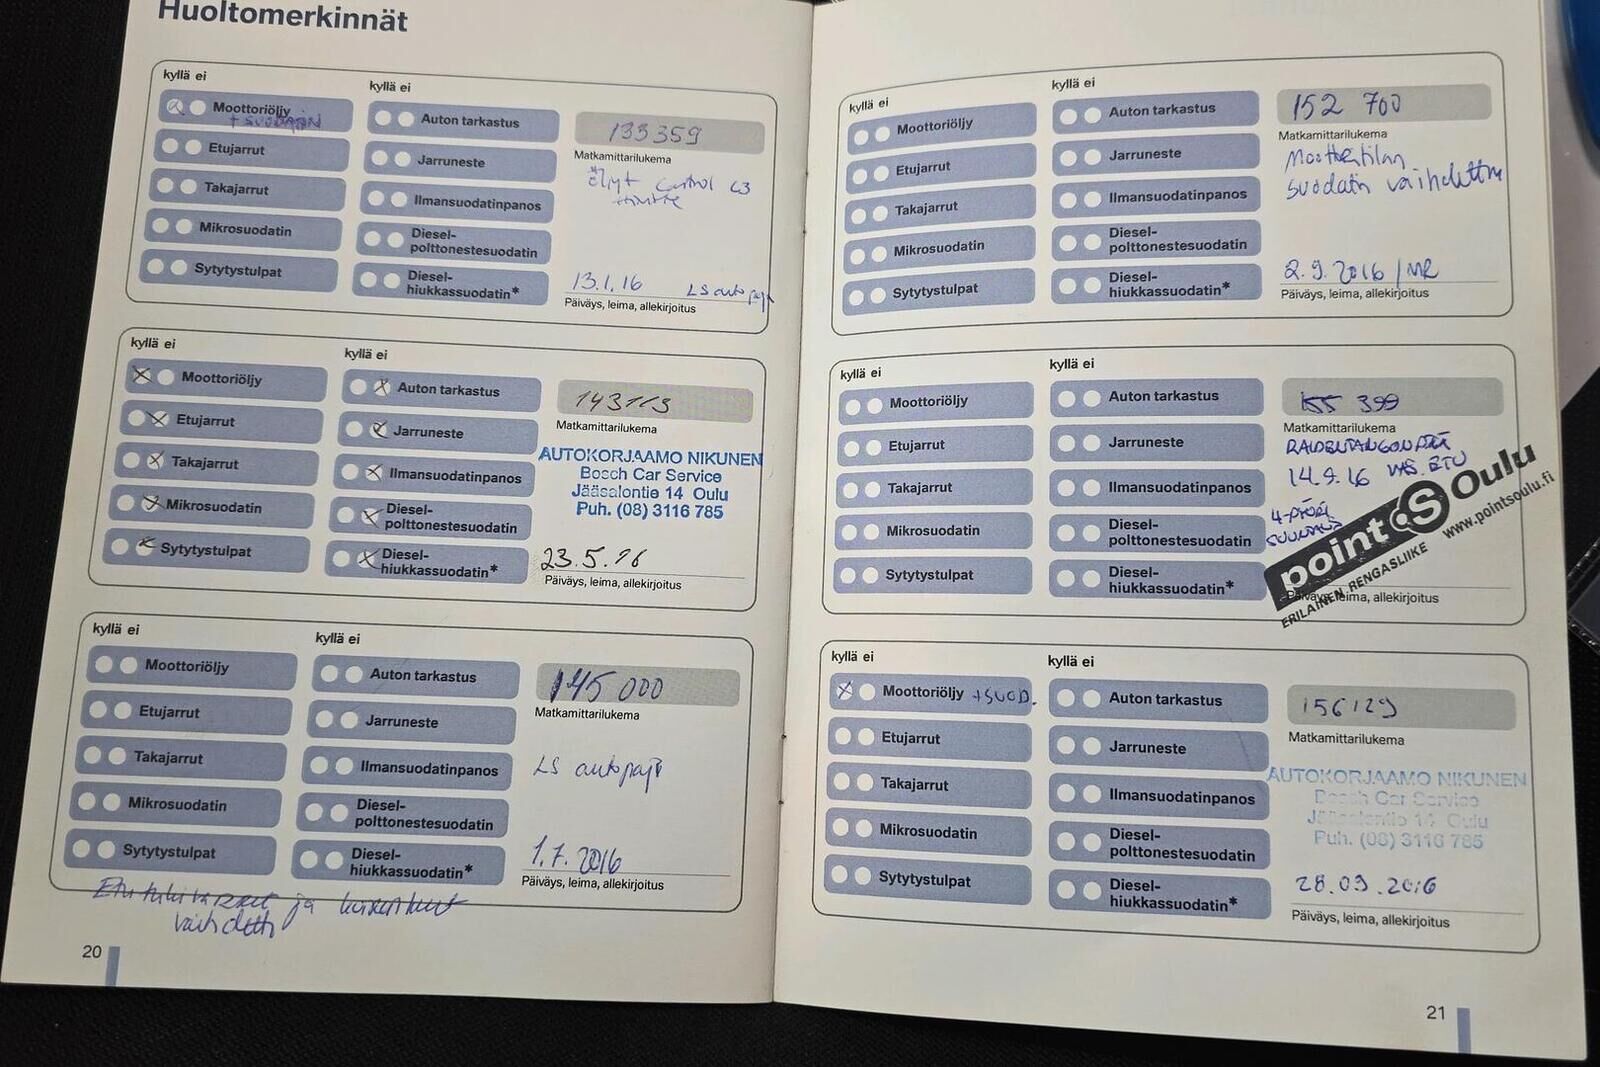 Huoltomerkinnät
kyllä ei
Moottoriöljy
+ SUODATIN
Etujarrut
Takajarrut
Mikrosuodatin
Sytytystulpat
kyllä ei
Auton tarkastus
Jarruneste
Ilmansuodatinpanos
Diesel-
polttonestesuodatin
Diesel-
hiukkassuodatin*
133359
Matkamittarilukema
13.1.16 LS autopaja
Päiväys, leima, allekirjoitus
kyllä ei
Moottoriöljy
Etujarrut
Takajarrut
Mikrosuodatin
Sytytystulpat
kyllä ei
Auton tarkastus
Jarruneste
Ilmansuodatinpanos
Diesel-
polttonestesuodatin
Diesel-
hiukkassuodatin*
143113
Matkamittarilukema
AUTOKORJAAMO NIKUNEN
Bosch Car Service
Jääsalontie 14 Oulu
Puh. (08) 3116 785
23.5.16
Päiväys, leima, allekirjoitus
kyllä ei
Moottoriöljy
Etujarrut
Takajarrut
Mikrosuodatin
Sytytystulpat
kyllä ei
Auton tarkastus
Jarruneste
Ilmansuodatinpanos
Diesel-
polttonestesuodatin
Diesel-
hiukkassuodatin*
145 000
Matkamittarilukema
LS autopaja
1.7.2016
Päiväys, leima, allekirjoitus
ja
vaihdettu
20
kyllä ei
Moottoriöljy
Etujarrut
Takajarrut
Mikrosuodatin
Sytytystulpat
kyllä ei
Auton tarkastus
Jarruneste
Ilmansuodatinpanos
Diesel-
polttonestesuodatin
Diesel-
hiukkassuodatin*
152 700
Matkamittarilukema
Moottoritilan
suodatin vaihdettu
2.9.2016 / MR
Päiväys, leima, allekirjoitus
kyllä ei
Moottoriöljy
Etujarrut
Takajarrut
Mikrosuodatin
Sytytystulpat
kyllä ei
Auton tarkastus
Jarruneste
Ilmansuodatinpanos
Diesel-
polttonestesuodatin
Diesel-
hiukkassuodatin*
155 399
Matkamittarilukema
RAIDETANGON PÄÄ
14.9.16 VAS. ETU
4-PYÖRÄ
SUUNTAUS
point S Oulu
ERILAINEN RENGASLIIKE www.pointsoulu.fi
Päiväys, leima, allekirjoitus
kyllä ei
Moottoriöljy +SUOD.
Etujarrut
Takajarrut
Mikrosuodatin
Sytytystulpat
kyllä ei
Auton tarkastus
Jarruneste
Ilmansuodatinpanos
Diesel-
polttonestesuodatin
Diesel-
hiukkassuodatin*
156129
Matkamittarilukema
AUTOKORJAAMO NIKUNEN
Bosch Car Service
Jääsalontie 14 Oulu
Puh. (08) 3116 785
28.09.2016
Päiväys, leima, allekirjoitus
21